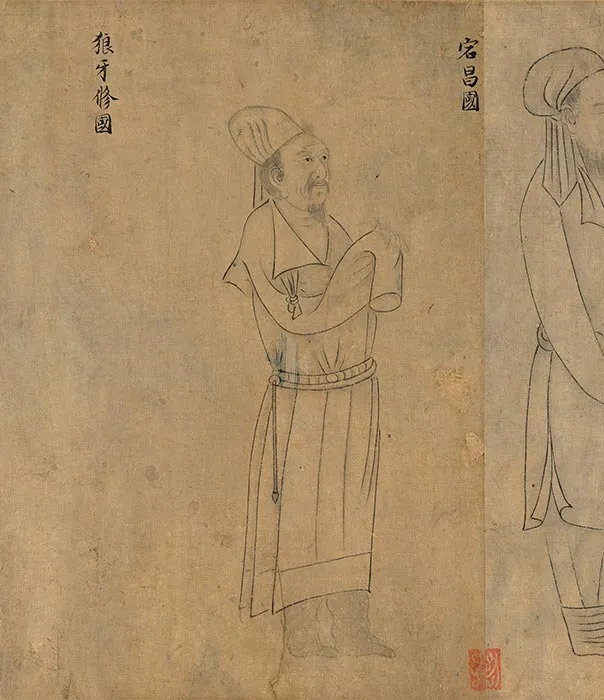 宕昌國
狼牙修國